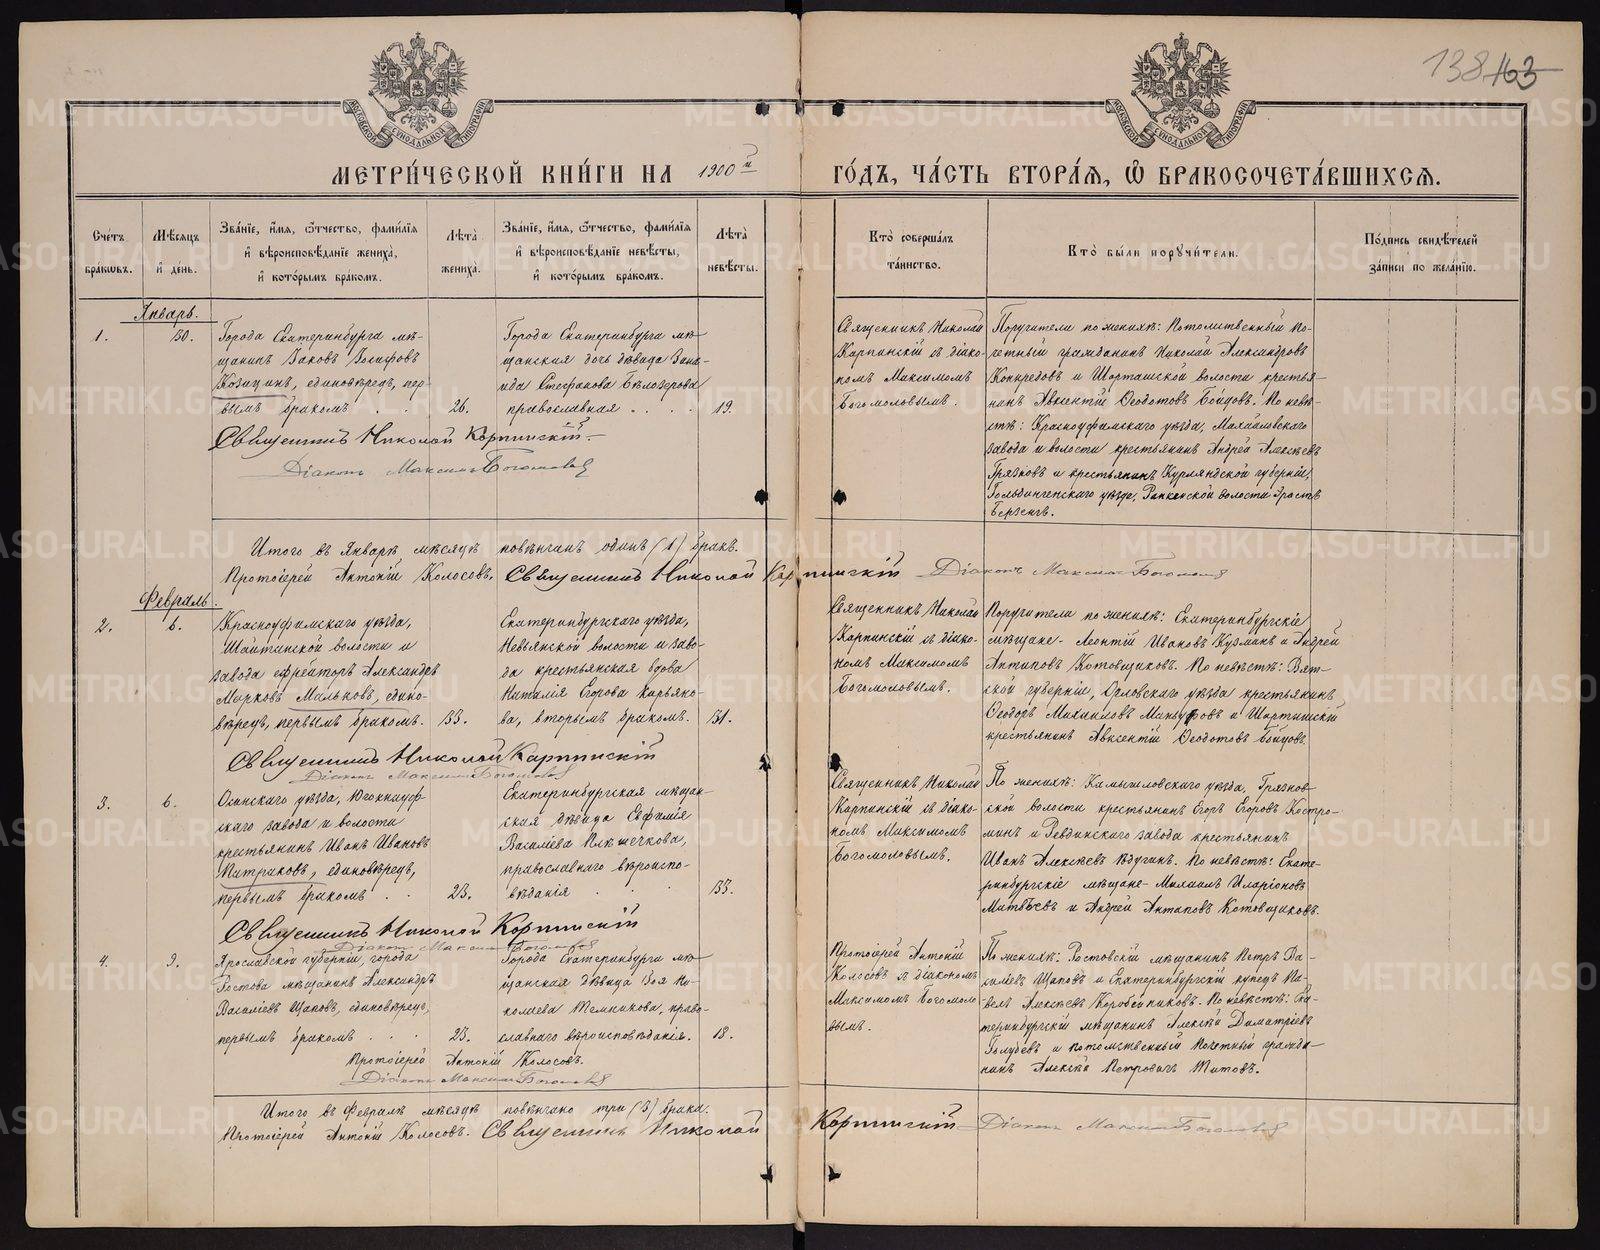 138 163
МОСКОВСКОЙ СѴНОДАЛЬНОЙ ТИПОГРАФІИ
МОСКОВСКОЙ СѴНОДАЛЬНОЙ ТИПОГРАФІИ
МЕТРИ́ЧЕСКОЙ КНИ́ГИ НА 1900й ГО́ДЪ, ЧА́СТЬ ВТОРА́Ѧ, Ѽ БРАКОСОЧЕТА́ВШИХСѦ.
Сче́тъ бра́кѡвъ.
Мѣ́сѧцъ и҆ де́нь.
Зва́нїе, и҆́мѧ, ѻ҆́тчество, фами́лїѧ и҆ вѣроисповѣ́данїе жениха̀, и҆ кото́рымъ бра́комъ.
Лѣта̀ жениха̀.
Зва́нїе, и҆́мѧ, ѻ҆́тчество, фами́лїѧ и҆ вѣроисповѣ́данїе невѣ́сты, и҆ кото́рымъ бра́комъ.
Лѣта̀ невѣ́сты.
Кто̀ соверша́лъ та́инство.
Кто̀ бы́ли порꙋчи́тели.
По́дпись свидѣ́телей за́писи по жела́нїю.
Январь.
1.
30.
Города Екатеринбурга мѣ-
щанинъ Іаковъ Іосифовъ
Козицинъ, единовѣрецъ, пер-
вымъ бракомъ . .
26.
Города Екатеринбурга мѣ-
щанская дочь дѣвица Зина-
ида Стефанова Бѣлозерова
православная . . . .
19.
Священникъ Николай
Карпинскій съ діако-
номъ Максимомъ
Богомоловымъ.
Поручители по женихѣ: Потомственный По-
четный гражданинъ Николай Александровъ
и Шарташской волости крестья-
нинъ Авксентій Ѳеодотовъ Бойцовъ. По невѣ-
стѣ: Красноуфимскаго уѣзда, Михайловскаго
завода и волости крестьянинъ Андрей Алексѣевъ
Грязновъ и крестьянинъ Курляндской губерніи,
Гольдингенскаго уѣзда, волости
Священникъ Николай Карпинскій.
Діаконъ Максимъ Богомоловъ
Итого въ Январѣ мѣсяцѣ повѣнчанъ одинъ (1) бракъ.
Протоіерей Антоній Колосовъ. Священникъ Николай Карпинскій Діаконъ Максимъ Богомоловъ
Февраль.
2.
6.
Красноуфимскаго уѣзда,
Шайтинской волости и
завода ефрейторъ Александръ
Марковъ Мальковъ, едино-
вѣрецъ, первымъ бракомъ.
33.
Екатеринбургскаго уѣзда,
Невьянской волости и заво-
да крестьянская вдова
Наталія Егорова Карьяко-
ва, вторымъ бракомъ.
31.
Священникъ Николай
Карпинскій съ діако-
номъ Максимомъ
Богомоловымъ.
Поручители по женихѣ: Екатеринбургскіе
мѣщане - Леонтій Ивановъ Кузминъ и Андрей
Антиповъ Котовщиковъ. По невѣстѣ: Вят-
ской губерніи, Орловскаго уѣзда крестьянинъ
Ѳеодоръ Михаиловъ и Шарташскій
крестьянинъ Авксентій Ѳеодотовъ Бойцовъ.
Священникъ Николай Карпинскій
Діаконъ Максимъ Богомоловъ
3.
6.
Осинскаго уѣзда, Югокнауф-
скаго завода и волости
крестьянинъ Иванъ Ивановъ
Митраковъ, единовѣрецъ,
первымъ бракомъ . .
23.
Екатеринбургская мѣщан-
ская дѣвица Евфимія
Василіева Плѣшечкова,
православнаго вѣроиспо-
вѣданія . . .
33.
Священникъ Николай
Карпинскій съ діако-
номъ Максимомъ
Богомоловымъ.
По женихѣ: Камышловскаго уѣзда, Грязнов-
ской волости крестьянинъ Егоръ Егоровъ Костро-
минъ и Ревдинскаго завода крестьянинъ
Иванъ Алексѣевъ По невѣстѣ: Екате-
ринбургскіе мѣщане - Михаилъ Иларіоновъ
Матвѣевъ и Андрей Антиповъ Котовщиковъ.
Священникъ Николай Карпинскій
Діаконъ Максимъ Богомоловъ
4.
9.
Ярославской губерніи, города
Ростова мѣщанинъ Александръ
Василіевъ Щаповъ, единовѣрецъ,
первымъ бракомъ . . .
23.
Города Екатеринбурга мѣ-
щанская дѣвица Зоя Ни-
колаева Темникова, право-
славнаго вѣроисповѣданія.
18.
Протоіерей Антоній
Колосовъ съ діакономъ
Максимомъ Богомоло-
вымъ.
По женихѣ: Ростовскій мѣщанинъ Петръ Ва-
силіевъ Щаповъ и Екатеринбургскій купецъ Па-
велъ Алексѣевъ Коробейниковъ. По невѣстѣ: Ека-
теринбургскій мѣщанинъ Алексѣй Димитріевъ
Голубевъ и потомственный Почетный гражда-
нинъ Алексѣй Петровичъ Титовъ.
Протоіерей Антоній Колосовъ.
Діаконъ Максимъ Богомоловъ
Итого въ Февралѣ мѣсяцѣ повѣнчано три (3) брака.
Протоіерей Антоній Колосовъ. Священникъ Николай Карпинскій Діаконъ Максимъ Богомоловъ
METRIKI.GASO-URAL.RU